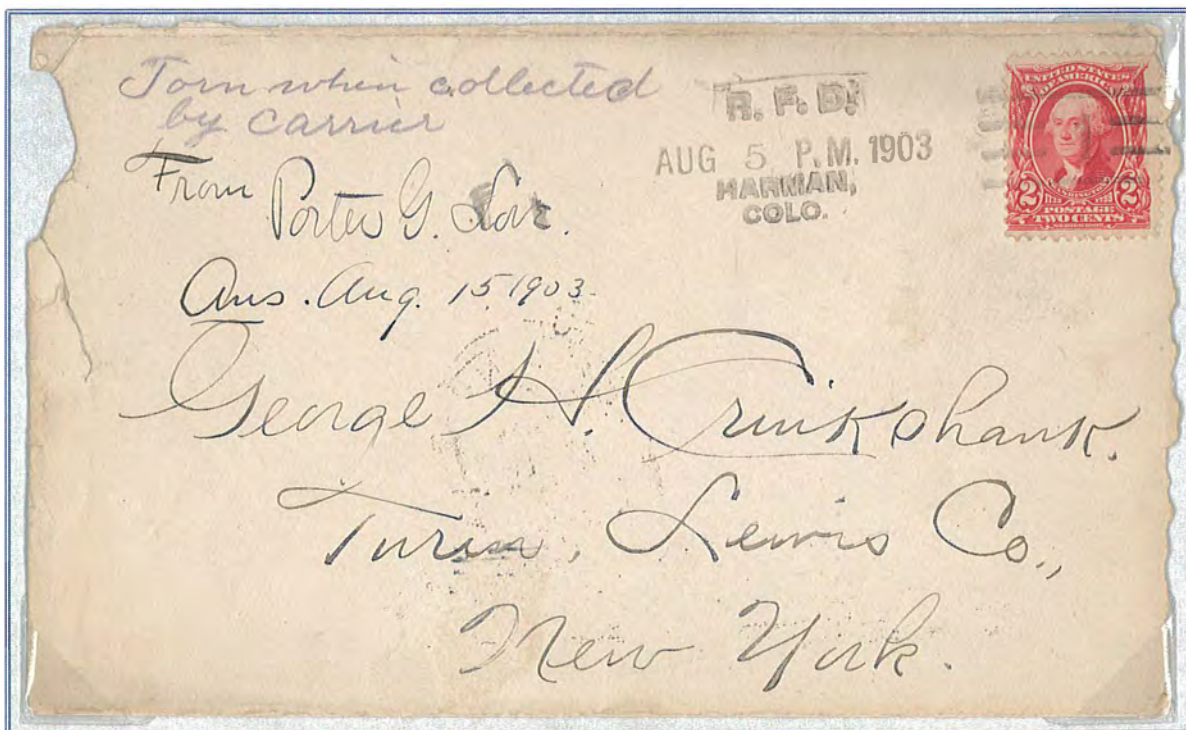 Torn when collected
by carrier
R. F. D.
AUG 5 P.M. 1903
HARMAN,
COLO.
UNITED STATES
OF AMERICA
2 2
POSTAGE
TWO CENTS
From Porter G.
Ans. Aug. 15 1903.
George H. Cruikshank.
Turin, Lewis Co.,
New York.